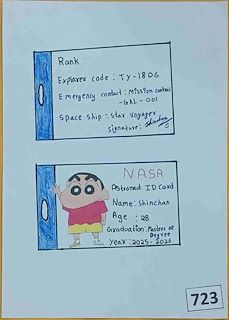 Rank
Explorer code : TY-1806
Emergency contact : Mission control
-GAL-001
Space ship : Star Voyager
Signature : Shinchan
NASA
Astronaut ID Card
Name : Shinchan
Age : 28
Graduation : Masters
Degree
Year : 2025-2026
723